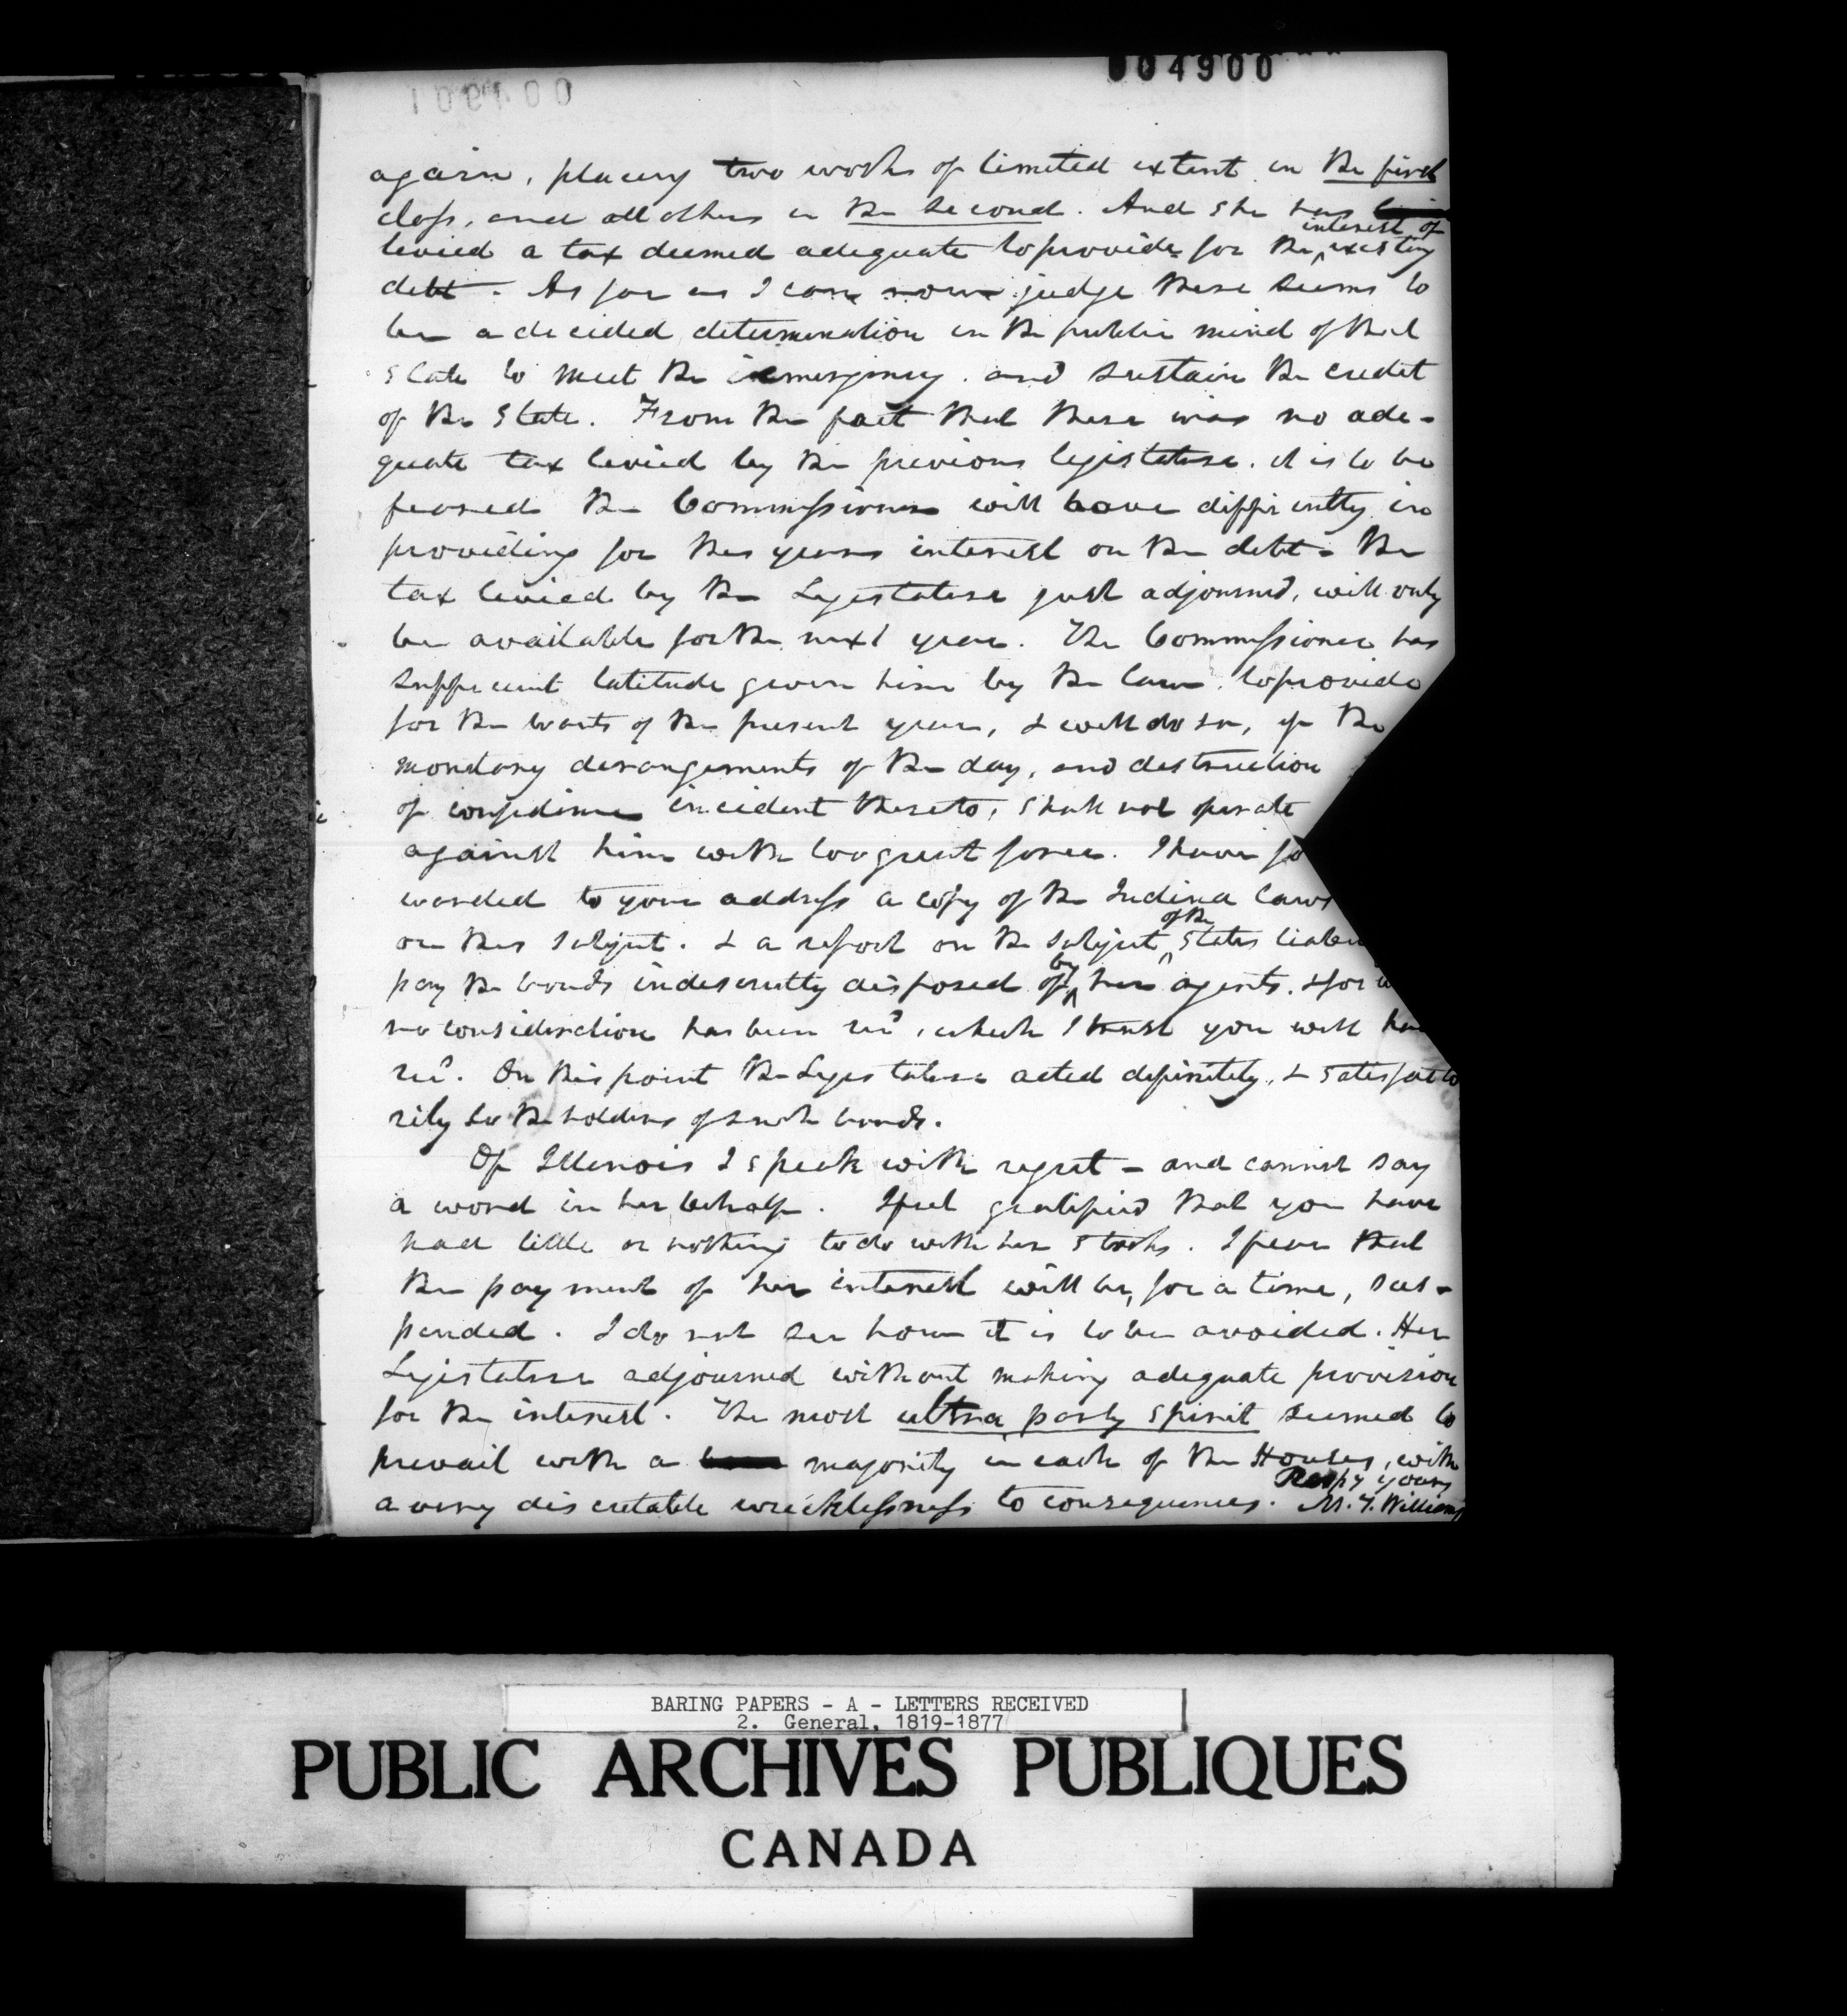 004900
again, placing two works of limited extent in the first
class, and all others in the second. And she has
interest of
levied a tax deemed adequate to provide for the existing
debt. As far as I can now judge there seems to
be a decided determination in the public mind of that
State to meet the emergency. and sustain the credit
of the State. From the fact that there was no ade-
quate tax levied by the previous legislature. it is to be
feared the Commissioner will have difficulty in
providing for this years interest on the debt. The
tax levied by the Legislature just adjourned, will only
be available for the next year. The Commissioner has
sufficient latitude given him by the law. to provide
for the wants of the present year, & will do so, if the
monetary derangements of the day, and destruction
of confidence incident thereto, shall not operate
against him with too great force. I have fo
warded to your address a copy of the Indina laws
of the
on this subject. & a report on the subject States
by
pay the bonds indescretly disposed of her agents. & for
no consideration has been recd, which I trust you will ha
recd. On this point the Legislature acted definitely, & satisfacto
rily to the holders of such bonds.
Of Illinois I speak with regret - and cannot say
a word in her behalf. I feel gratified that you have
had little or nothing to do with her stocks. I fear that
the payment of her interest will be, for a time, sus-
pended. I do not see how it is to be avoided. Her
Legislature adjourned without making adequate provision
for the interest. The most ultra party spirit seemed to
prevail with a majority in each of the Houses, with
a very discretable wrecklessness to consequences.
Respy yours
M. T. Williams
BARING PAPERS - A - LETTERS RECEIVED
2. General, 1819-1877
PUBLIC ARCHIVES PUBLIQUES
CANADA